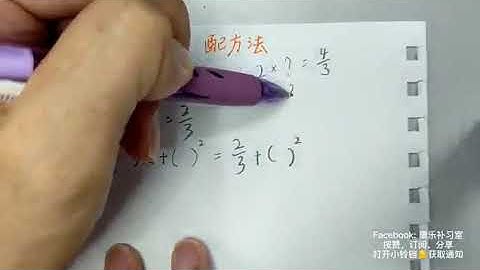 配方法
2 × ? = 4/3
= 2/3
+ ( )² = 2/3 + ( )²
Facebook: 康乐补习室
按赞，订阅，分享
打开小铃铛🔔获取通知